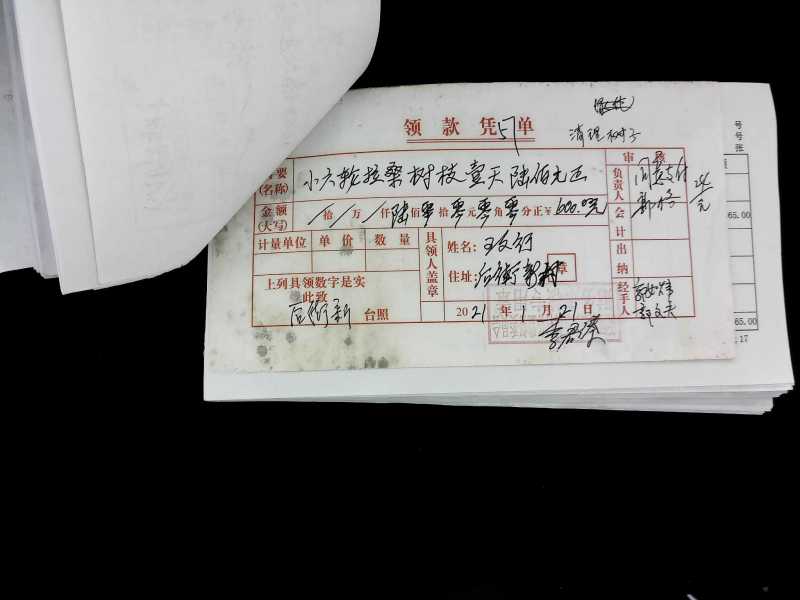 领款凭单
57
清理树子
摘要(名称) 小六轮拉桑树枝壹天陆佰元正
审核
金额(大写) 拾 万 仟 陆 佰 零 拾 零 元 零 角 零 分 正 ¥ 600.0元
负责人 同意支付
会计
计量单位 单价 数量
具领人盖章
姓名:
住址: 后街新村 章
出纳
上列具领数字是实
此致
后街新 台照
2021年1月21日
经手人
号
号
张
65.00
65.00
17